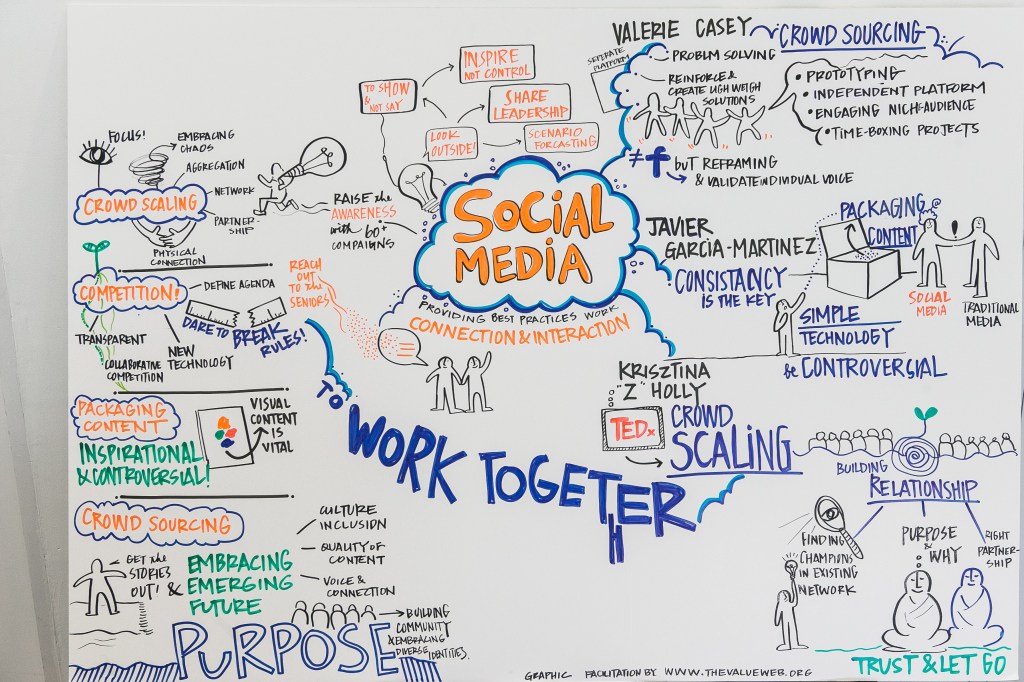 VALERIE CASEY
CROWD SOURCING
SEPERATE
PLATFORM
PROBLM SOLVING
REINFORCE &
CREATE LIGH WEIGH
SOLUTIONS
• PROTOTYPING
• INDEPENDENT PLATFORM
• ENGAGING NICHE AUDIENCE
• TIME-BOXING PROJECTS
≠ f BUT REFRAMING
& VALIDATE INDIVIDUAL VOICE
INSPIRE
NOT CONTROL
TO SHOW
&
NOT SAY
SHARE
LEADERSHIP
LOOK
OUTSIDE!
SCENARIO
FORCASTING
SOCIAL
MEDIA
PROVIDING BEST PRACTICES WORK
CONNECTION & INTERACTION
RAISE THE
AWARENESS
WITH 60+
COMPAIGNS
FOCUS!
EMBRACING
CHAOS
AGGREGATION
CROWD SCALING
NETWORK
PARTNER-
SHIP
PHYSICAL
CONNECTION
COMPETITION!
DEFINE AGENDA
DARE TO BREAK
RULES!
TRANSPARENT
COLLABORATIVE
COMPETITION
NEW
TECHNOLOGY
REACH
OUT
TO THE
SENIORS
PACKAGING
CONTENT
INSPIRATIONAL
& CONTROVERSIAL!
VISUAL
CONTENT
IS
VITAL
CROWD SOURCING
GET THE
STORIES
OUT!
& EMBRACING
EMERGING
FUTURE
CULTURE
INCLUSION
QUALITY OF
CONTENT
VOICE &
CONNECTION
BUILDING
COMMUNITY
& EMBRACING
DIVERSE
IDENTITIES.
PURPOSE
TO WORK TOGETHER
H
JAVIER
GARCIA-MARTINEZ
CONSISTANCY
IS THE KEY
PACKAGING
CONTENT
SOCIAL
MEDIA
TRADITIONAL
MEDIA
SIMPLE
TECHNOLOGY
be CONTROVERSIAL
KRISZTINA
"Z" HOLLY
TEDx
CROWD
SCALING
BUILDING
RELATIONSHIP
FINDING
CHAMPIONS
IN EXISTING
NETWORK
PURPOSE
&
WHY
RIGHT
PARTNER-
SHIP
TRUST & LET GO
GRAPHIC FACILITATION BY WWW.THEVALUEWEB.ORG